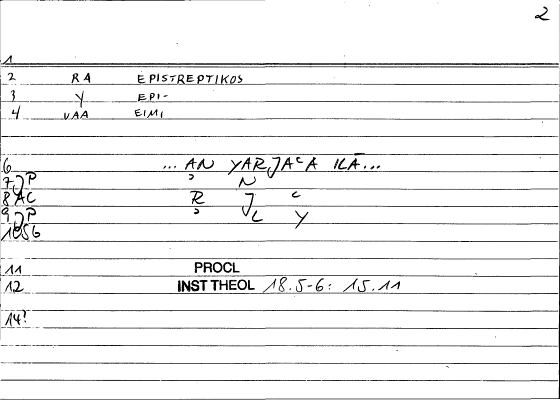 2
1
2 RA EPISTREPTIKOS
3 Y EPI-
4 VAA EIMI
6 ... AN YARJAcA ILĀ...
7 JP ' N
8 AC R J c
9 JP ' L Y
10 SG
11 PROCL
12 INST THEOL 18.5-6: 15.11
14?